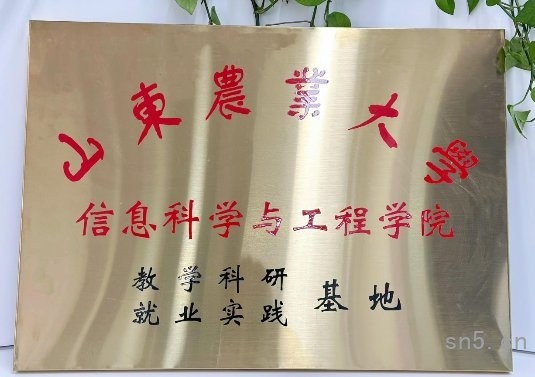 山東農業大學
信息科学与工程学院
教学科研
就业实践 基地
sn5.cn